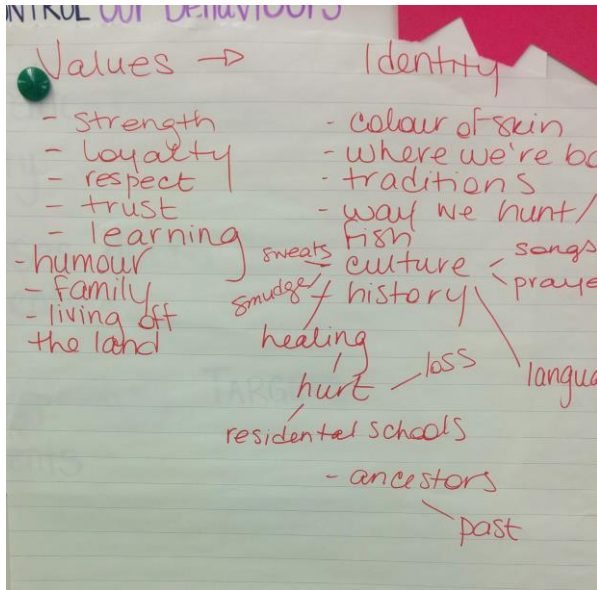 CONTROL OUR BEHAVIOURS
Values → Identity
- strength
- loyalty
- respect
- trust
- learning
- humour
- family
- living off
the land
- colour of skin
- where we're bo
- traditions
- way we hunt/
fish
- culture
sweats
smudge
songs
praye
- history
langua
healing
hurt
loss
residental schools
- ancestors
past